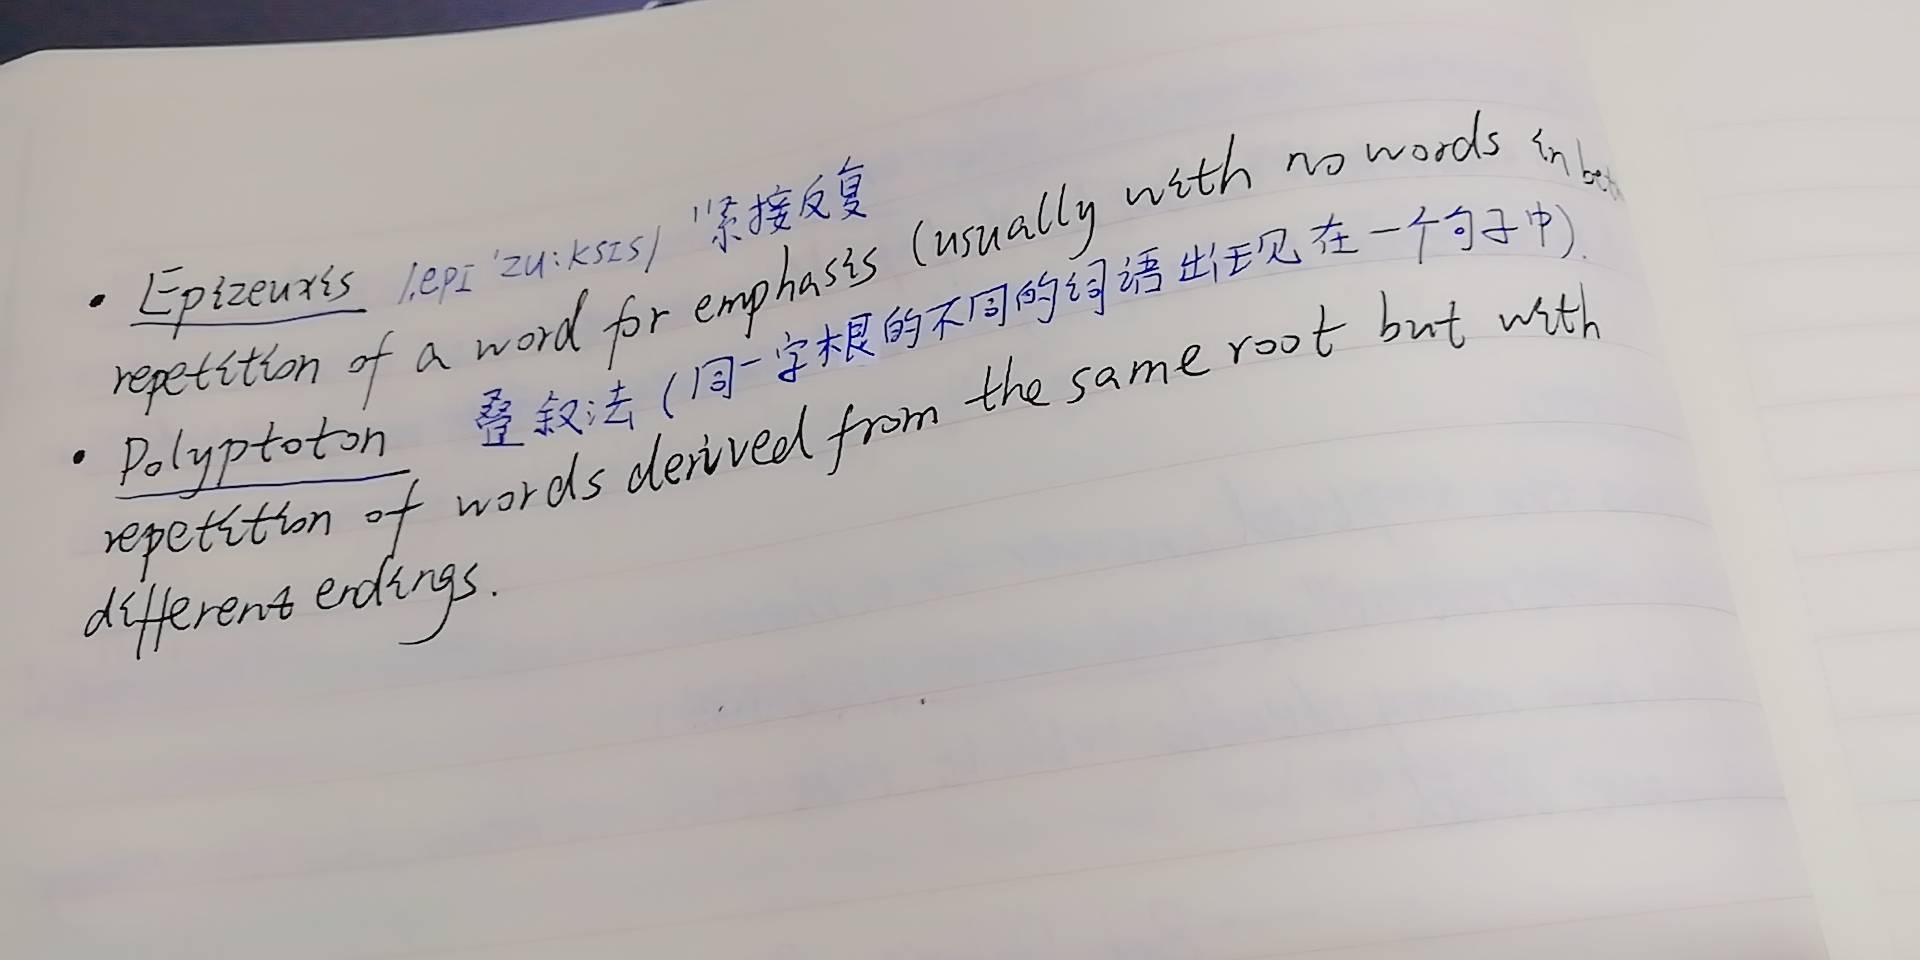 • Epizeuxis /ˌepɪ'zu:ksɪs/ 紧接反复
repetition of a word for emphasis (usually with no words in
• Polyptoton 叠叙法 (同一字根的不同的词语出现在一个句子中).
repetition of words derived from the same root but with
different endings.